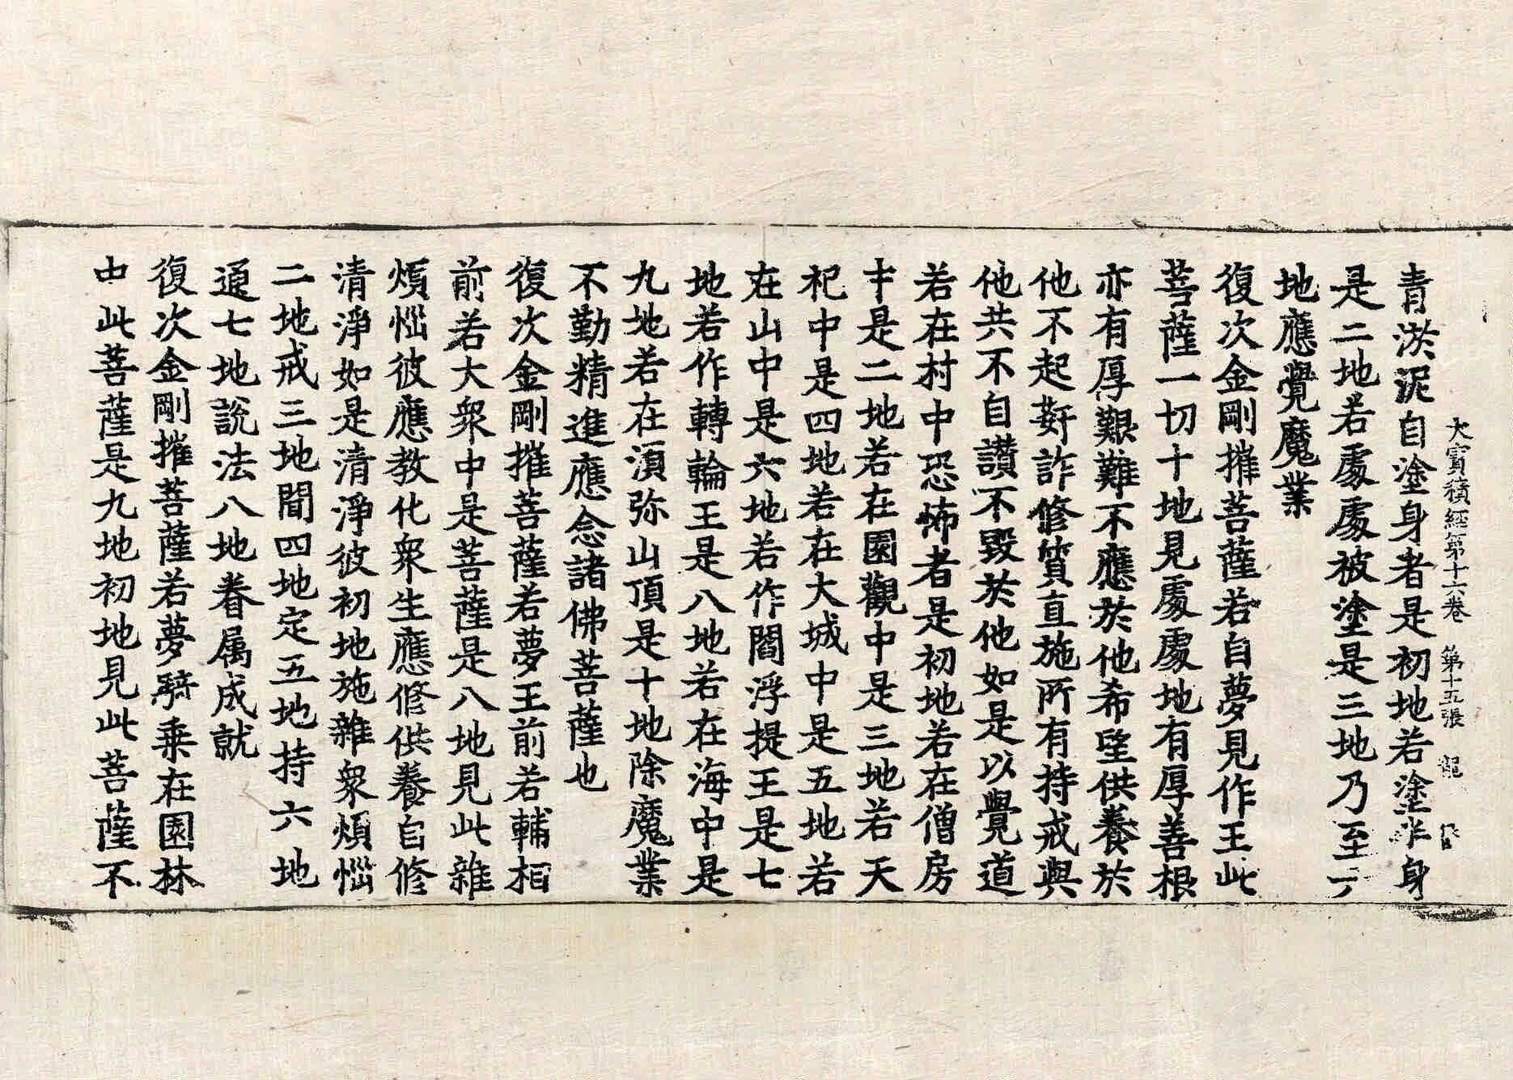 大寳積經第十六卷 第十五張 龍
青淤泥自塗身者是初地若塗半身
是二地若處處被塗是三地乃至十
地應覺魔業
復次金剛摧菩薩若自夢見作王此
菩薩一切十地見處處地有厚善根
亦有厚艱難不應於他希望供養於
他不起姧詐修質直施所有持戒與
他共不自讃不毀於他如是以覺道
若在村中恐怖者是初地若在僧房
中是二地若在園觀中是三地若天
祀中是四地若在大城中是五地若
在山中是六地若作閻浮提王是七
地若作轉輪王是八地若在海中是
九地若在湏弥山頂是十地除魔業
不勤精進應念諸佛菩薩也
復次金剛摧菩薩若夢王前若輔相
前若大衆中是菩薩是八地見此雜
煩惱彼應教化衆生應修供養自修
清淨如是清淨彼初地施雜衆煩惱
二地戒三地聞四地定五地持六地
通七地說法八地眷属成就
復次金剛摧菩薩若夢騎乗在園林
中此菩薩是九地初地見此菩薩不